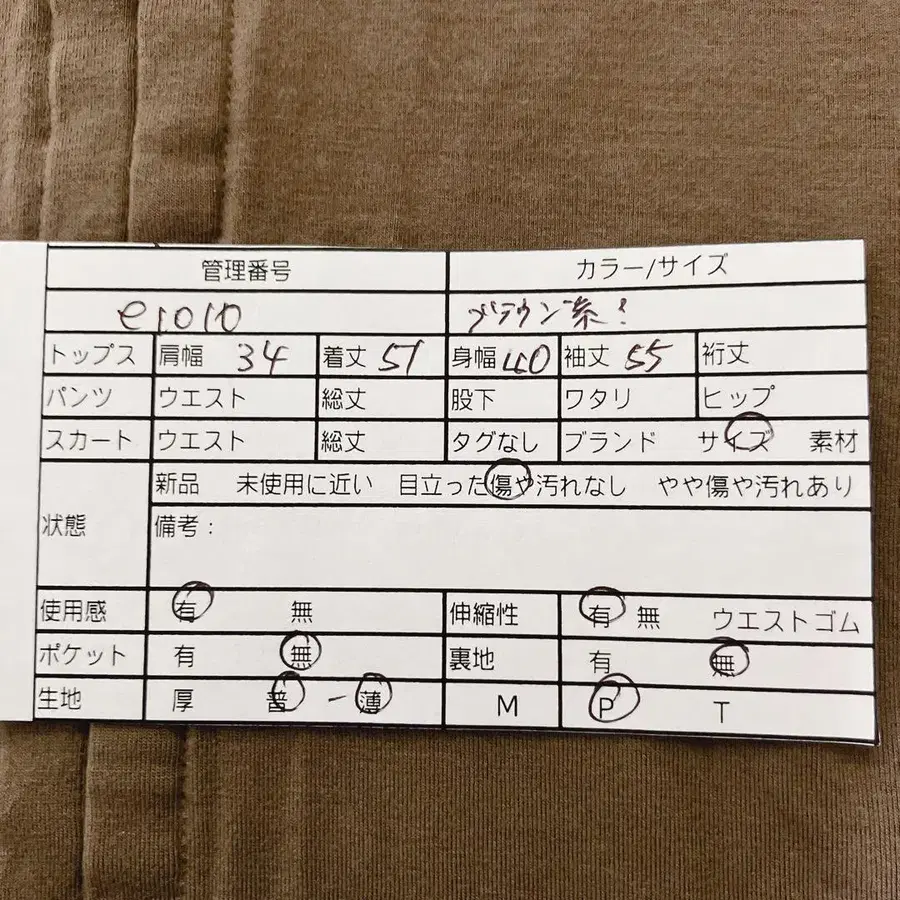 管理番号 カラー/サイズ
e1010 ブラウン系!
トップス 肩幅 34 着丈 51 身幅 40 袖丈 55 裄丈
パンツ ウエスト 総丈 股下 ワタリ ヒップ
スカート ウエスト 総丈 タグなし ブランド サイズ 素材
新品 未使用に近い 目立った傷や汚れなし やや傷や汚れあり
状態 備考:
使用感 有 無 伸縮性 有 無 ウエストゴム
ポケット 有 無 裏地 有 無
生地 厚 普 ー 薄 M P T